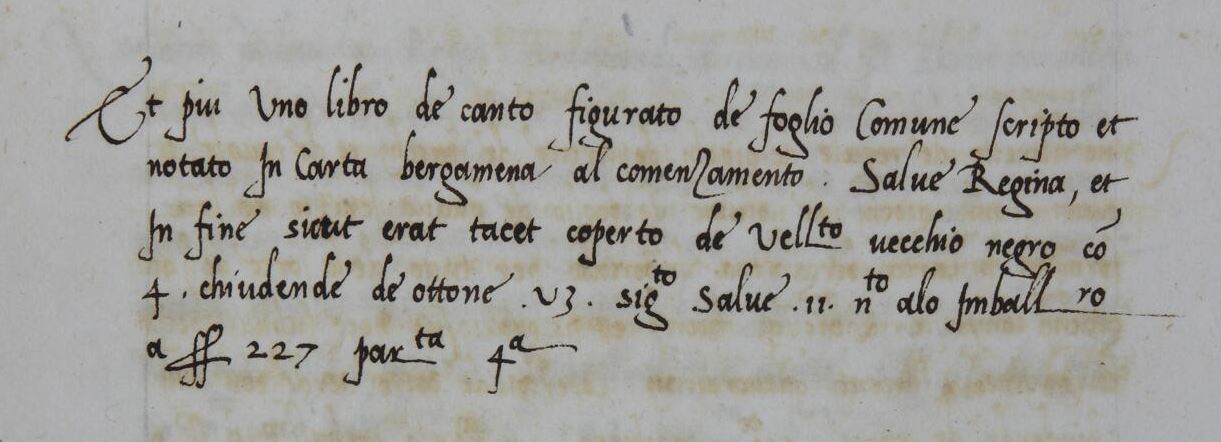 Et piu Uno libro de canto figurato de foglio Comune scripto et
notato In Carta bergamena al comenzamento . Salue Regina, et
In fine sicut erat tacet coperto de Vellto uecchio negro cō
4 . chiudende de ottone . V3 . sigto Salue . 11 . nto alo Imballro
a ff 227 parta 4a